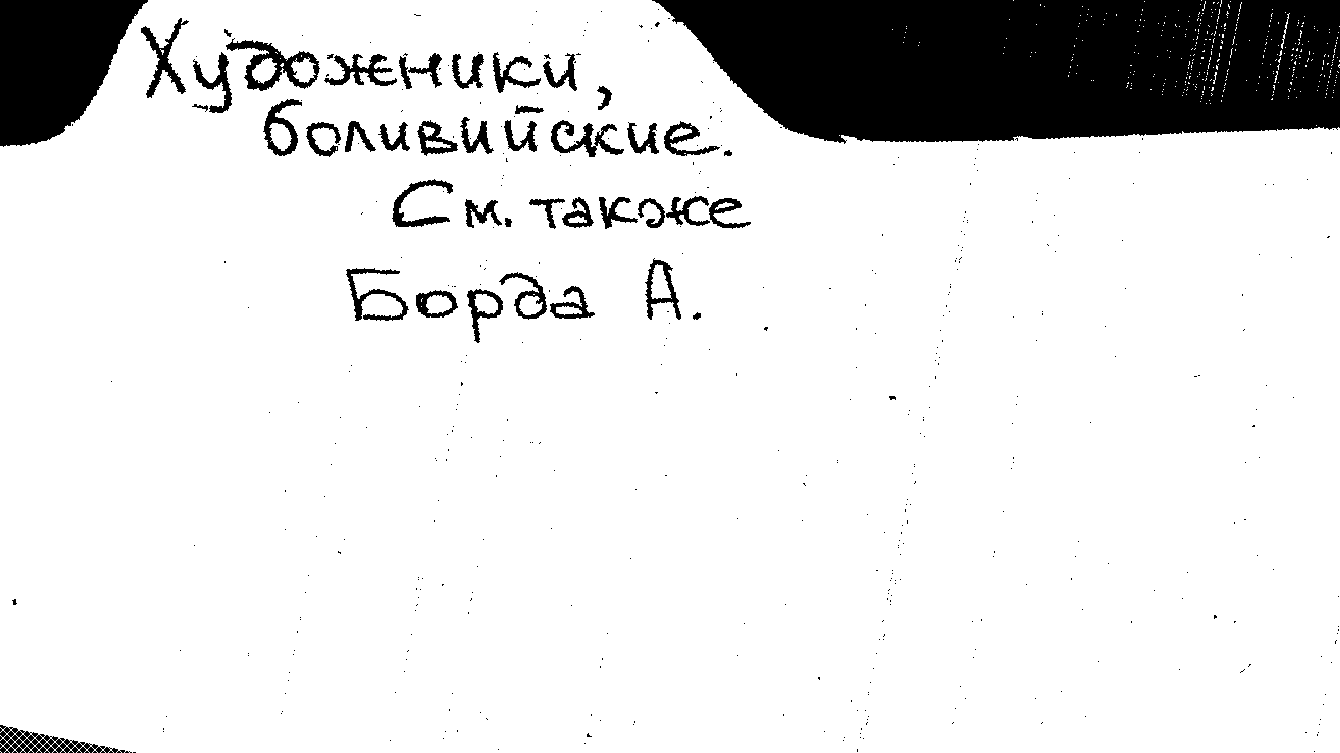 Художники,
боливийские.
См. также
Борда А.